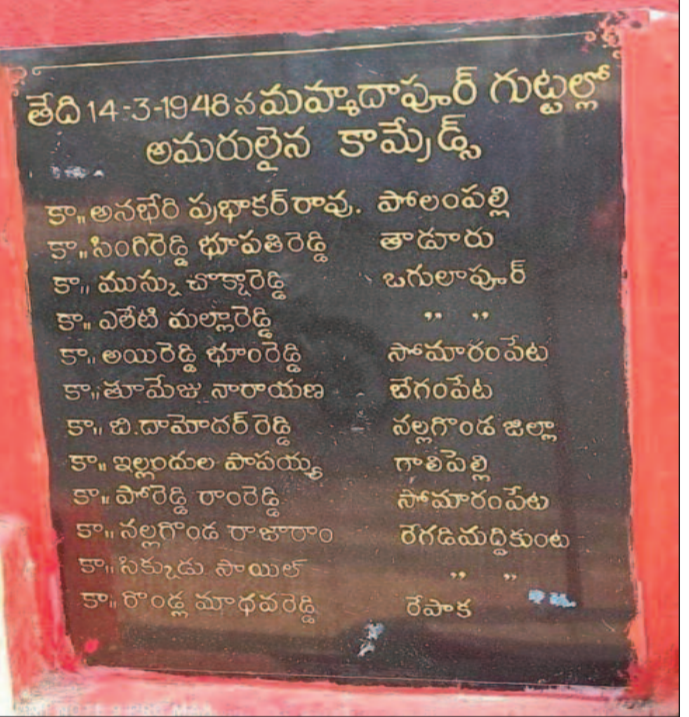 తేది 14-3-1948 న మహ్మదాపూర్ గుట్టల్లో
అమరులైన కామ్రేడ్స్
కా॥ అనభేరి ప్రభాకర్ రావు. పోలంపల్లి
కా॥ సింగిరెడ్డి భూపతిరెడ్డి తాడూరు
కా॥ ముస్కు చొక్కారెడ్డి ఒగులాపూర్
కా॥ ఎలేటి మల్లారెడ్డి " "
కా॥ అయిరెడ్డి భూంరెడ్డి సోమారంపేట
కా॥ తూమోజు నారాయణ బేగంపేట
కా॥ బి.దామోదర్ రెడ్డి నల్లగొండ జిల్లా
కా॥ ఇల్లందుల పాపయ్య గాలిపెల్లి
కా॥ పోరెడ్డి రాంరెడ్డి సోమారంపేట
కా॥ నల్లగొండ రాజారాం రేగడిమద్దికుంట
కా॥ సిక్కుడు సాయిల్ " "
కా॥ రొండ్ల మాధవరెడ్డి రేపాక
MI NOTE 9 PRO MAX